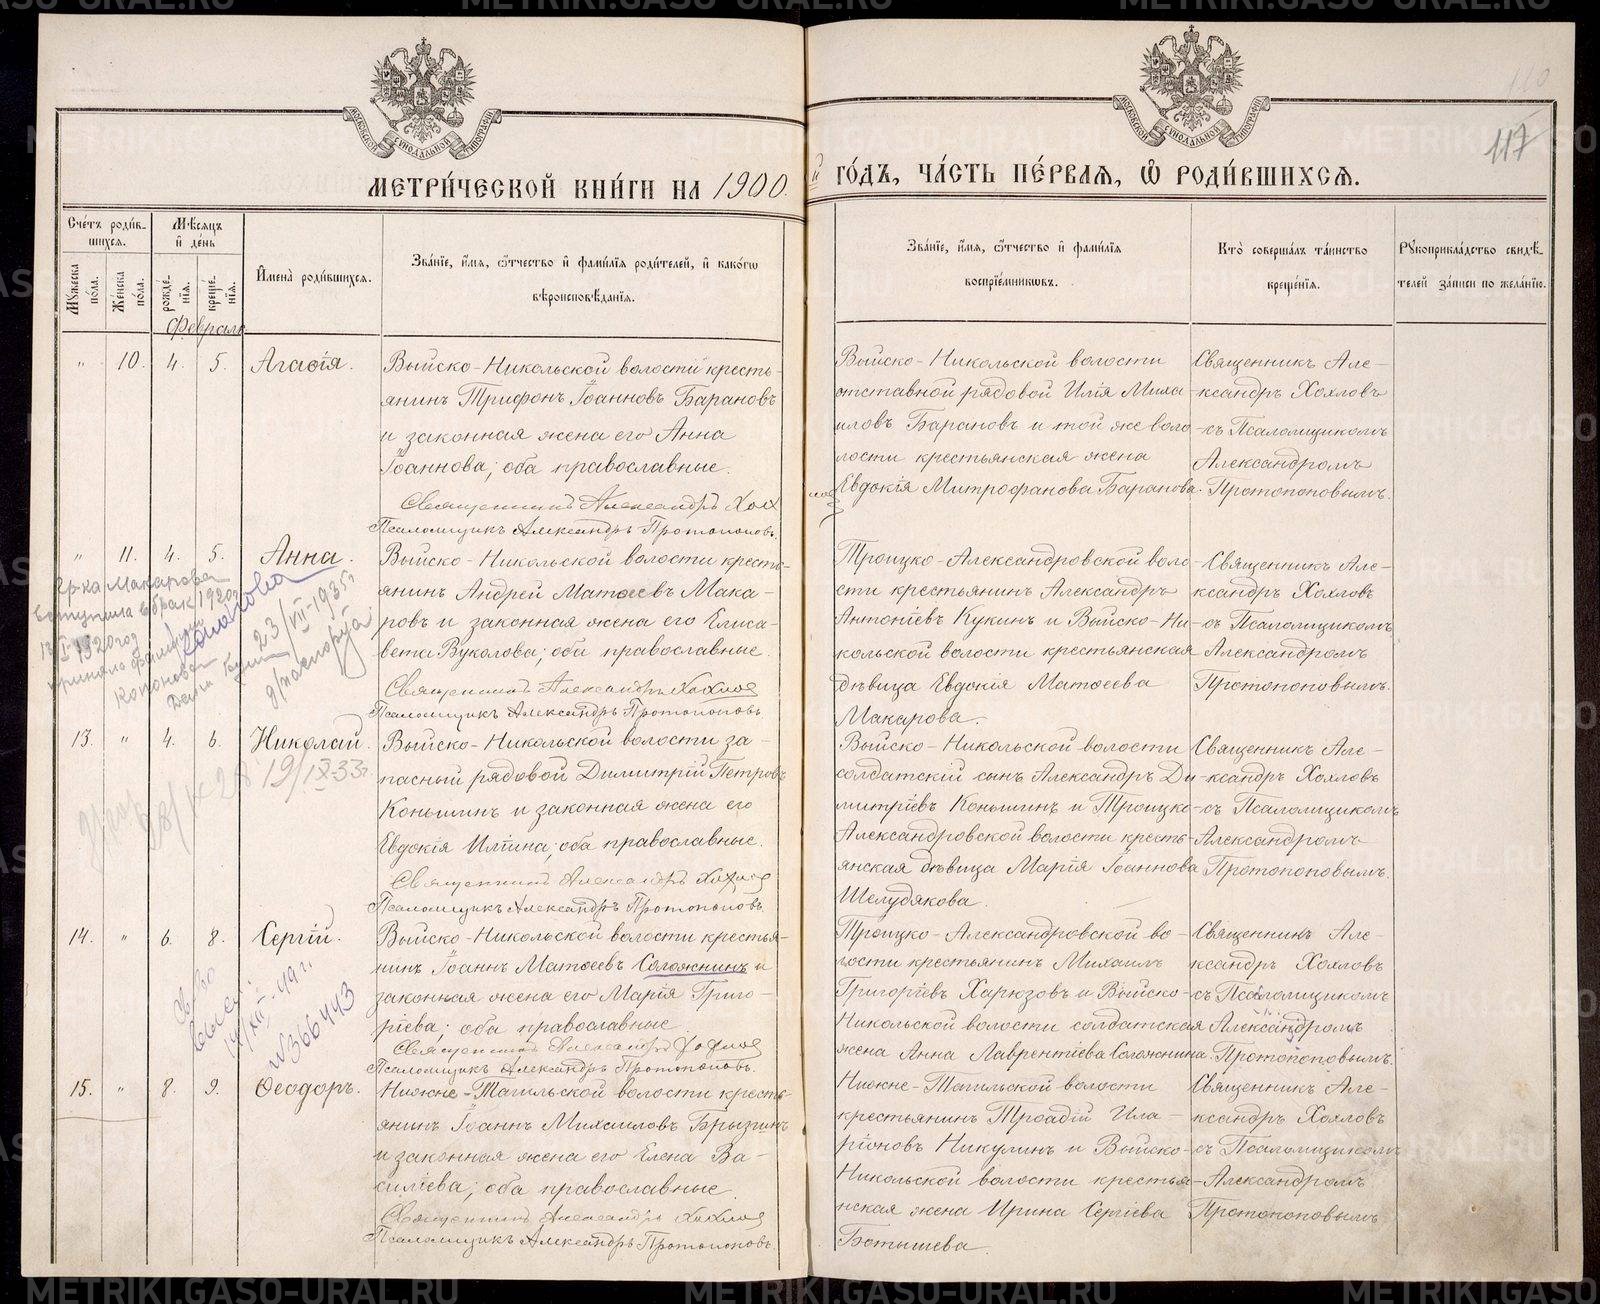 METRIKI.GASO-URAL.RU
МОСКОВСКОЙ СѴНОДАЛЬНОЙ ТИПОГРАФІИ
МОСКОВСКОЙ СѴНОДАЛЬНОЙ ТИПОГРАФІИ
117
МЕТРИ́ЧЕСКОЙ КНИ́ГИ НА 1900.
й ГО́ДЪ, ЧА́СТЬ ПЕ́РВАЯ, Ѡ РОДИ́ВШИХСЯ.
Счетъ родившихся.
Мужеска пола.
Женска пола.
Мѣсяцъ и день
рожденія.
крещенія.
Имена родившихся.
Званіе, имя, отчество и фамилія родителей, и какого
вѣроисповѣданія.
Званіе, имя, отчество и фамилія
воспріемниковъ.
Кто совершалъ таинство
крещенія.
Рукоприкладство свидѣ-
телей записи по желанію.
Февраль
" 10. 4. 5. Агаѳія.
Выйско-Никольской волости кресть-
янинъ Трифонъ Іоанновъ Барановъ
и законная жена его Анна
Іоаннова; оба православные.
Священникъ Александръ Хох
Псаломщикъ Александръ Протопоповъ.
Выйско-Никольской волости
отставной рядовой Илія Миха
иловъ Барановъ и той же воло
лости крестьянская жена
Евдокія Митрофанова Баранова.
Священникъ Але-
ксандръ Хохловъ
съ Псаломщикомъ
Александромъ
Протопоповымъ.
" 11. 4. 5. Анна.
Гр-ка Макарова
Вступила в брак 1920г
1920 год
приняла фамилию
Кононова
Кононова
23/VII-1935г.
д/паспорта
Выйско-Никольской волости кресть-
янинъ Андрей Матѳеевъ Мака-
ровъ и законная жена его Елиса-
вета Вуколова; оба православные.
Священникъ Александръ Хохлов
Псаломщикъ Александръ Протопоповъ
Троицко-Александровской воло
сти крестьянинъ Александръ
Антоніевъ Кукинъ и Выйско-Ни-
кольской волости крестьянская
дѣвица Евдокія Матѳеева
Макарова.
Священникъ Але-
ксандръ Хохловъ
съ Псаломщикомъ
Александромъ
Протопоповымъ.
13. " 4. 6. Николай.
19/IX 33г.
Выйско-Никольской волости за-
пасный рядовой Димитрій Петровъ
Коньшинъ и законная жена его
Евдокія Иліина; оба православные.
Священникъ Александръ Хохлов
Псаломщикъ Александръ Протопоповъ.
Выйско-Никольской волости
солдатскій сынъ Александръ Ди
митріевъ Коньшинъ и Троицко-
Александровской волости кресть-
янская дѣвица Марія Іоаннова
Шелудякова.
Священникъ Але-
ксандръ Хохловъ
съ Псаломщикомъ
Александромъ
Протопоповымъ.
14. " 6. 8. Сергій.
14/XII-49 г.
№366443
Выйско-Никольской волости крестья-
нинъ Іоаннъ Матѳеевъ Соложнинъ и
законная жена его Марія Григо-
ріева; оба православные
Священникъ Александръ Хохлов
Псаломщикъ Александръ Протопоповъ.
Троицко-Александровской во-
лости крестьянинъ Михаилъ
Григоріевъ Харюзовъ и Выйско-
Никольской волости солдатская
жена Анна Лаврентіева Соложнина.
Священникъ Але-
ксандръ Хохловъ
съ Псаломщикомъ
Александромъ
Протопоповымъ.
15. " 8. 9. Ѳеодоръ.
Нижне-Тагильской волости кресть-
янинъ Іоаннъ Михаиловъ Брызгинъ
и законная жена его Елена Ва-
силіева; оба православные.
Священникъ Александръ Хохлов
Псаломщикъ Александръ Протопоповъ.
Нижне-Тагильской волости
крестьянинъ Троадій Ила-
ріоновъ Никулинъ и Выйско-
Никольской волости крестья-
нская жена Ирина Сергіева
Ботышева.
Священникъ Але-
ксандръ Хохловъ
съ Псаломщикомъ
Александромъ
Протопоповымъ
METRIKI.GASO-URAL.RU